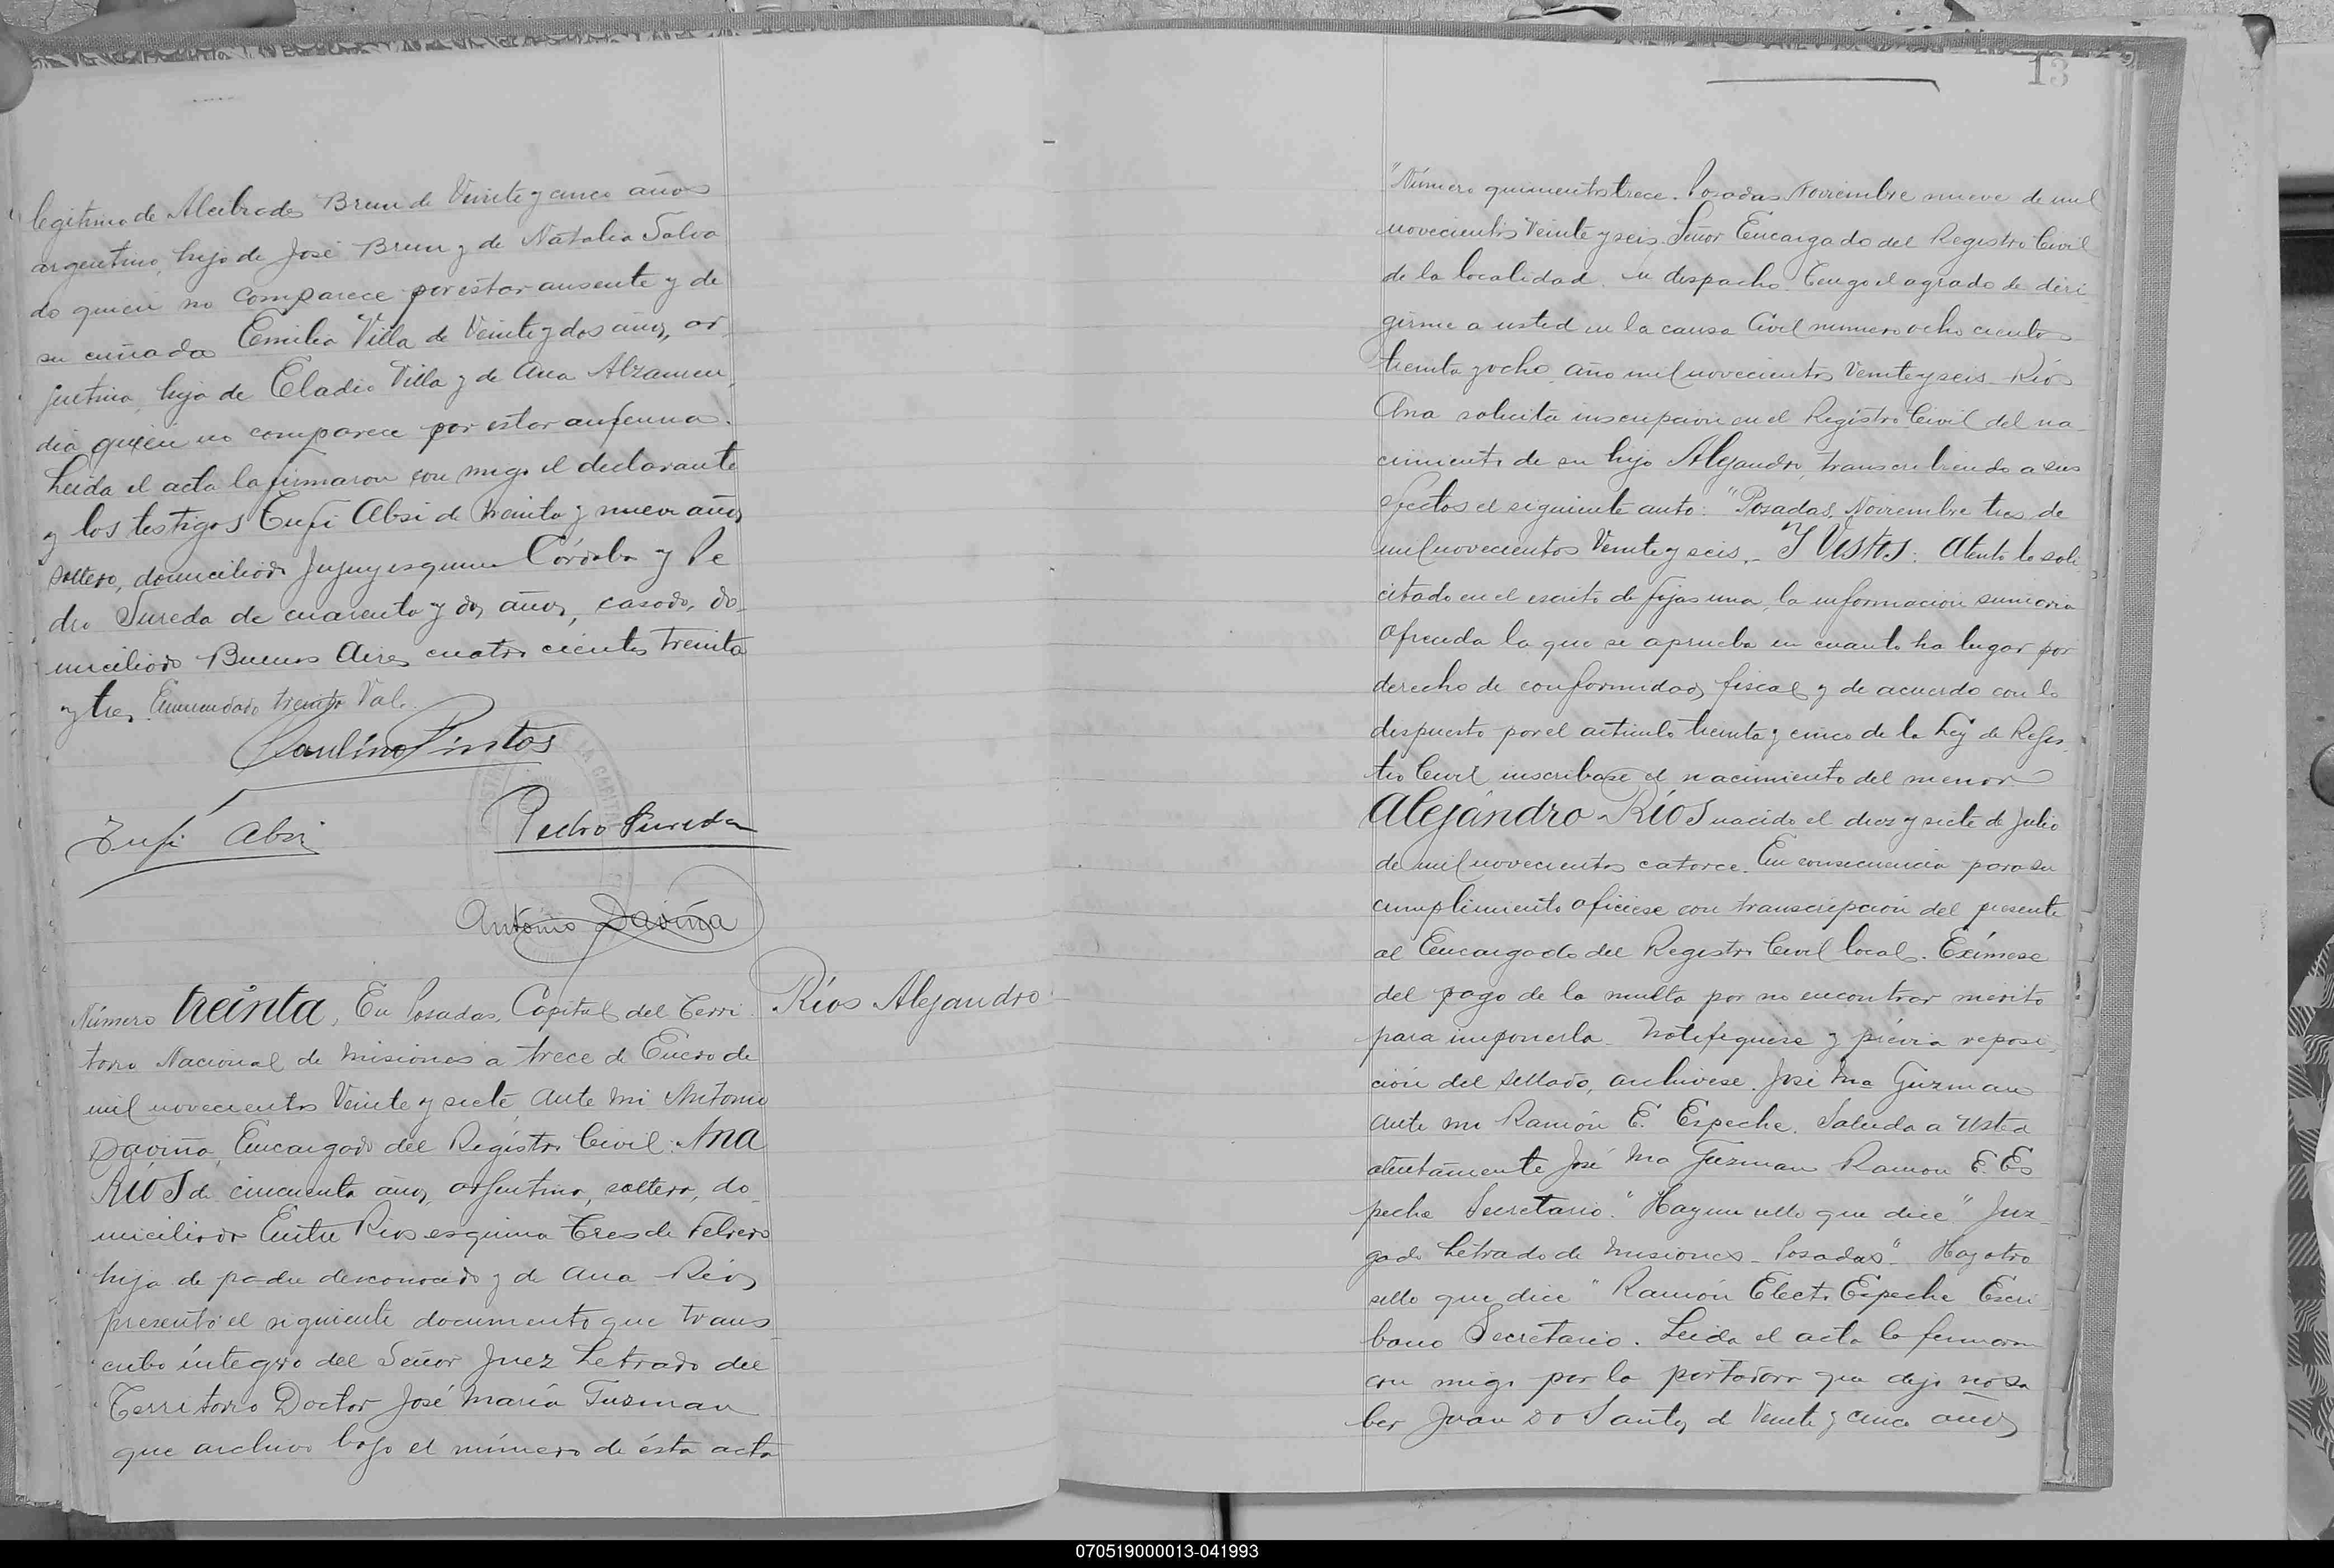 legitima de Alcibiades Brun de Veinte y cinco años
argentino, hijo de José Brun y de Natalia Salva
do quien no comparece por estar ausente y de
su cuñada Emilia Villa de Veinte y dos años, ar
gentina, hija de Eladio Villa y de Ana Alzamen
dia quien no comparece por estar enferma.
Leida el acta la firmaron con migo el declarante
y los testigos Tufi Absi de treinta y nueve años
soltero, domiciliado Jujuy esquina Córdoba y Pe
dro Sureda de cuarenta y dos años, casado, do-
miciliado Buenos Aires cuatro cientos treinta
y tres. Enmendado treinta Vale.
Paulino Pintos
Tufi Absi
Pedro Sureda
Antonio Daviña
Número treinta, En Posadas, Capital del Terri
Ríos Alejandro
torio Nacional de Misiones a trece de Enero de
mil novecientos Veinte y siete, ante mi Antonio
Daviña, Encargado del Registro Civil: Ana
Ríos de cincuenta años, argentina, soltera, do-
miciliada Entre Rios esquina Tres de Febrero
hija de padre desconocido y de Ana Ríos
presentó el siguiente documento que trans
cribo íntegro del Señor Juez Letrado del
Territorio Doctor José María Guzman
que archivo bajo el número de ésta acta
13
"Número quinientos trece. Posadas Noviembre nueve de mil
novecientos Veinte y seis. Señor Encargado del Registro Civil
de la localidad. Su despacho. Tengo el agrado de diri-
girme a usted en la causa Civil numero ocho cientos
treinta y ocho, año mil novecientos Veinte y seis - Ríos
Ana solicita inscripcion en el Registro Civil del na-
cimiento de su hijo Alejandro, transcribiendo a sus
efectos el siguiente auto: "Posadas, Noviembre tres de
mil novecientos Veinte y seis. - Y Vistos: Atento lo soli-
citado en el escrito de fojas una, la informacion sumaria
ofrecida la que se aprueba en cuanto ha lugar por
derecho de conformidad fiscal y de acuerdo con lo
dispuesto por el articulo treinta y cinco de la Ley de Regis-
tro Civil inscribase el nacimiento del menor
Alejandro Ríos nacido el diez y siete de Julio
de mil novecientos catorce. En consecuencia para su
cumplimiento oficiese con transcripcion del presente
al Encargado del Registro Civil local. Exímese
del pago de la multa por no encontrar mérito
para imponerla. Notifiquese y prévia reposi-
ción del sellado, archivese. José Ma Guzman
Ante mi Ramón E. Espeche. Saluda a Usted
atentamente José Ma Guzman Ramon E. Es
peche Secretario." Hay un sello que dice "Juz-
gado Letrado de Misiones - Posadas" - Hay otro
sello que dice "Ramón Electo Espeche Escri-
bano Secretario. Leida el acta la firmaron
con migo por la portadora que dijo no sa
ber Juan Do Santos de Veinte y cinco años
070519000013-041993